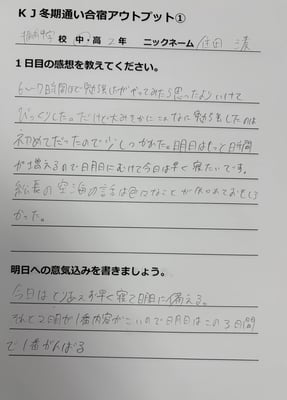 KJ冬期通い合宿アウトプット①
校 中・高 2年 ニックネーム 住田
1日目の感想を教えてください。
6〜7時間ほど勉強 やってみたら思ったよりいけて
びっくりした。だけど休みをこんなに勉強をしたのは
初めてだったので少しつかれた。明日はもっと時間
が増えるので明日にむけて今日は早く寝たいです。
の空海の話は色々なことが 知れておもしろ
かった。
明日への意気込みを書きましょう。
今日はとりあえず早く寝て明日に備える。
それと2日目が1番内容がこいので明日はこの3日間
で1番がんばる